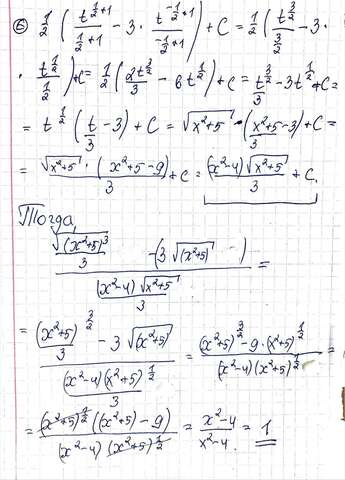 ⑥ 1/2 ( t^(1/2+1) / (1/2+1) - 3 · t^(-1/2+1) / (-1/2+1) ) + C = 1/2 ( t^(3/2) / (3/2) - 3 ·
· t^(1/2) / (1/2) ) + C = 1/2 ( 2t^(3/2) / 3 - 6t^(1/2) ) + C = t^(3/2) / 3 - 3t^(1/2) + C =
= t^(1/2) ( t/3 - 3 ) + C = √(x²+5) · ( (x²+5)/3 - 3 ) + C =
= √(x²+5) · ( x²+5-9 ) / 3 + C = (x²-4) √(x²+5) / 3 + C.
Тогда,
( √((x²+5)³) / 3 - (3 √(x²+5)) ) / ( (x²-4) √(x²+5) / 3 ) =
= ( (x²+5)^(3/2) / 3 - 3 √(x²+5) ) / ( (x²-4)(x²+5)^(1/2) / 3 ) = ( (x²+5)^(3/2) - 9 · (x²+5)^(1/2) ) / ( (x²-4)(x²+5)^(1/2) ) =
= (x²+5)^(1/2) ((x²+5) - 9) / ( (x²-4) (x²+5)^(1/2) ) = (x²-4) / (x²-4) = 1